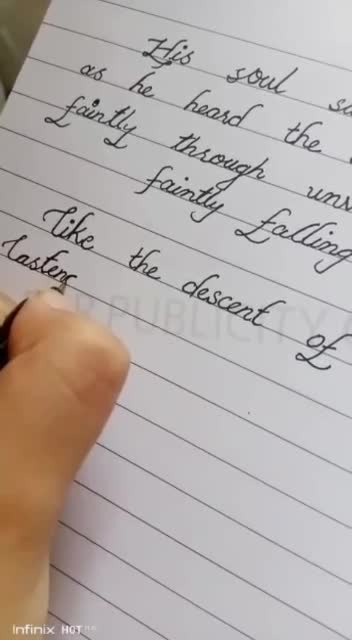 His soul
as he heard the
faintly through
faintly falling
like the descent of
PUBLICITY
Infinix HOT